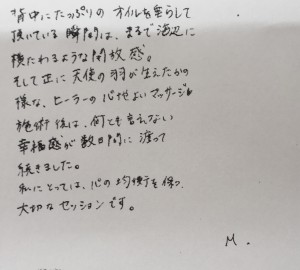 背中にたっぷりの オイルを垂らして
頂いている 瞬間は、まるで 海辺に
横たわるような開放感。
そして正に 天使の羽が生えたかの
様な、ヒーラーの 心地よいマッサージ。
施術後は、何とも言えない
幸福感が数日間に渡って
続きました。
私にとっては、心の均衡を保つ
大切なセッションです。
M.